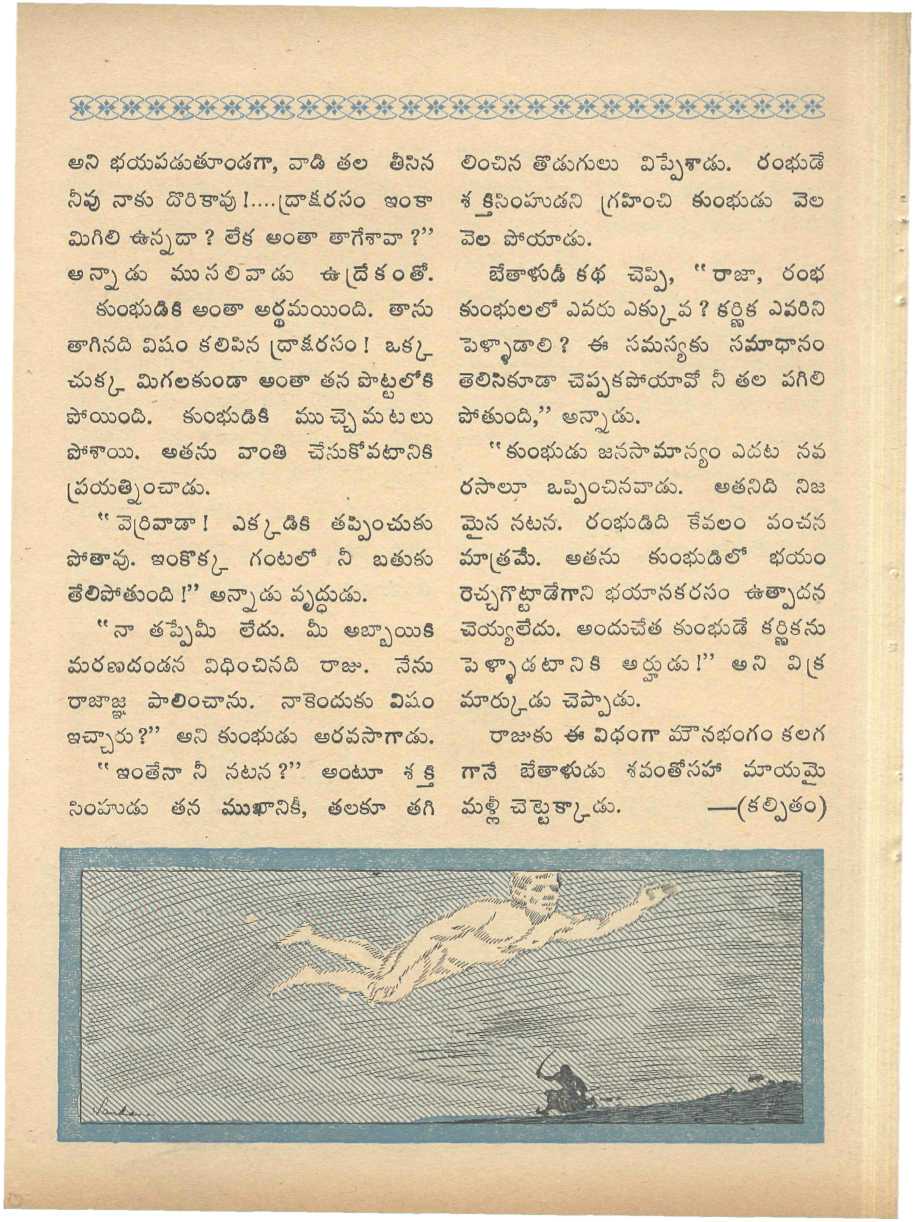 అని భయపడుతూండగా, వాడి తల తీసిన
నీవు నాకు దొరికావు !....ద్రాక్షరసం ఇంకా
మిగిలి ఉన్నదా ? లేక అంతా తాగేశావా ?”
అన్నాడు ముసలివాడు ఉద్రేకంతో.
కుంభుడికి అంతా అర్థమయింది. తాను
తాగినది విషం కలిపిన ద్రాక్షరసం ! ఒక్క
చుక్క మిగలకుండా అంతా తన పొట్టలోకి
పోయింది. కుంభుడికి ముచ్చెమటలు
పోశాయి. అతను వాంతి చేసుకోవటానికి
ప్రయత్నించాడు.
“వెర్రివాడా ! ఎక్కడికి తప్పించుకు
పోతావు. ఇంకొక్క గంటలో నీ బతుకు
తేలిపోతుంది !” అన్నాడు వృద్ధుడు.
“నా తప్పేమీ లేదు. మీ అబ్బాయికి
మరణదండన విధించినది రాజు. నేను
రాజాజ్ఞ పాలించాను. నాకెందుకు విషం
ఇచ్చారు ?” అని కుంభుడు అరవసాగాడు.
“ఇంతేనా నీ నటన ?” అంటూ శక్తి
సింహుడు తన ముఖానికీ, తలకూ తగి
లించిన తొడుగులు విప్పేశాడు. రంభుడే
శక్తిసింహుడని గ్రహించి కుంభుడు వెల
వెల పోయాడు.
బేతాళుడీ కథ చెప్పి, “రాజా, రంభ
కుంభులలో ఎవరు ఎక్కువ ? కర్ణిక ఎవరిని
పెళ్ళాడాలి ? ఈ సమస్యకు సమాధానం
తెలిసికూడా చెప్పకపోయావో నీ తల పగిలి
పోతుంది,” అన్నాడు.
“కుంభుడు జనసామాన్యం ఎదట నవ
రసాలూ ఒప్పించినవాడు. అతనిది నిజ
మైన నటన. రంభుడిది కేవలం వంచన
మాత్రమే. అతను కుంభుడిలో భయం
రెచ్చగొట్టాడేగాని భయానకరసం ఉత్పాదన
చెయ్యలేదు. అందుచేత కుంభుడే కర్ణికను
పెళ్ళాడటానికి అర్హుడు !” అని విక్ర
మార్కుడు చెప్పాడు.
రాజుకు ఈ విధంగా మౌనభంగం కలగ
గానే బేతాళుడు శవంతోసహా మాయమై
మళ్లీ చెట్టెక్కాడు. —(కల్పితం)